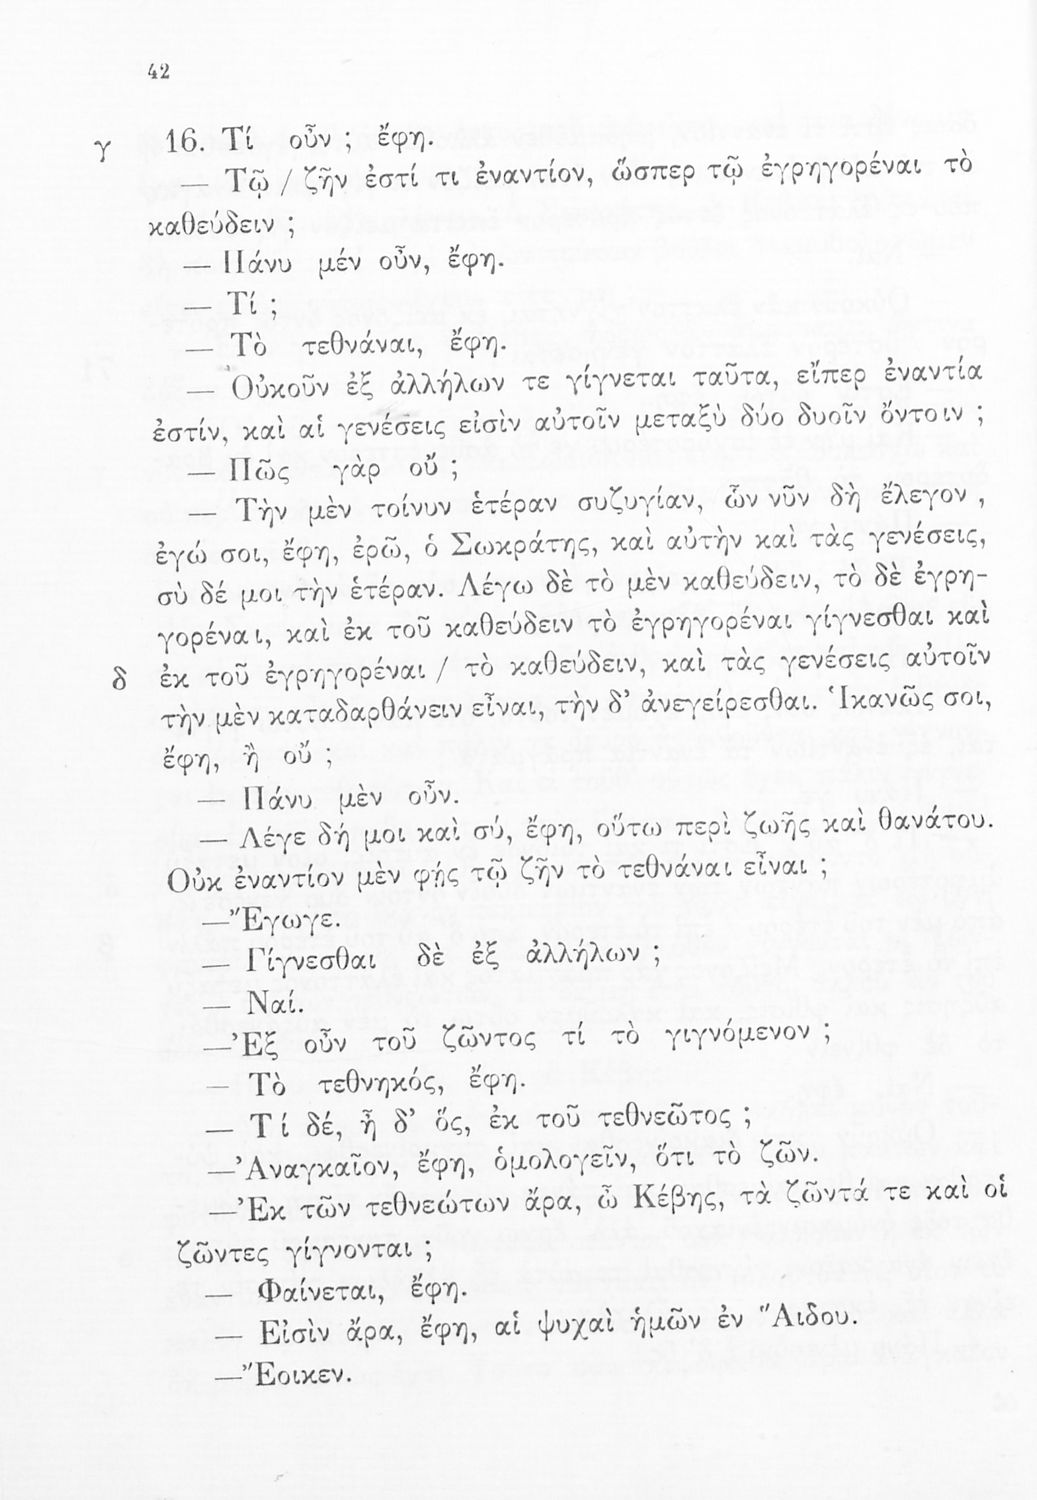 42
γ 16. Τί οὖν ; ἔφη.
— Τῷ / ζῆν ἐστί τι ἐναντίον, ὥσπερ τῷ ἐγρηγορέναι τὸ
καθεύδειν ;
— Πάνυ μέν οὖν, ἔφη.
— Τί ;
— Τὸ τεθνάναι, ἔφη.
— Οὐκοῦν ἐξ ἀλλήλων τε γίγνεται ταῦτα, εἴπερ ἐναντία
ἐστίν, καὶ αἱ γενέσεις εἰσὶν αὐτοῖν μεταξὺ δύο δυοῖν ὄντοιν ;
— Πῶς γὰρ οὔ ;
— Τὴν μὲν τοίνυν ἑτέραν συζυγίαν, ὧν νῦν δὴ ἔλεγον ,
ἐγώ σοι, ἔφη, ἐρῶ, ὁ Σωκράτης, καὶ αὐτὴν καὶ τὰς γενέσεις,
σὺ δέ μοι τὴν ἑτέραν. Λέγω δὲ τὸ μὲν καθεύδειν, τὸ δὲ ἐγρη-
γορέναι, καὶ ἐκ τοῦ καθεύδειν τὸ ἐγρηγορέναι γίγνεσθαι καὶ
δ ἐκ τοῦ ἐγρηγορέναι / τὸ καθεύδειν, καὶ τὰς γενέσεις αὐτοῖν
τὴν μὲν καταδαρθάνειν εἶναι, τὴν δ’ ἀνεγείρεσθαι. Ἱκανῶς σοι,
ἔφη, ἢ οὔ ;
— Πάνυ μὲν οὖν.
— Λέγε δή μοι καὶ σύ, ἔφη, οὕτω περὶ ζωῆς καὶ θανάτου.
Οὐκ ἐναντίον μὲν φῂς τῷ ζῆν τὸ τεθνάναι εἶναι ;
— Ἔγωγε.
— Γίγνεσθαι δὲ ἐξ ἀλλήλων ;
— Ναί.
— Ἐξ οὖν τοῦ ζῶντος τί τὸ γιγνόμενον ;
— Τὸ τεθνηκός, ἔφη.
— Τί δέ, ἦ δ’ ὅς, ἐκ τοῦ τεθνεῶτος ;
— Ἀναγκαῖον, ἔφη, ὁμολογεῖν, ὅτι τὸ ζῶν.
— Ἐκ τῶν τεθνεώτων ἄρα, ὦ Κέβης, τὰ ζῶντά τε καὶ οἱ
ζῶντες γίγνονται ;
— Φαίνεται, ἔφη.
— Εἰσὶν ἄρα, ἔφη, αἱ ψυχαὶ ἡμῶν ἐν Ἅιδου.
— Ἔοικεν.